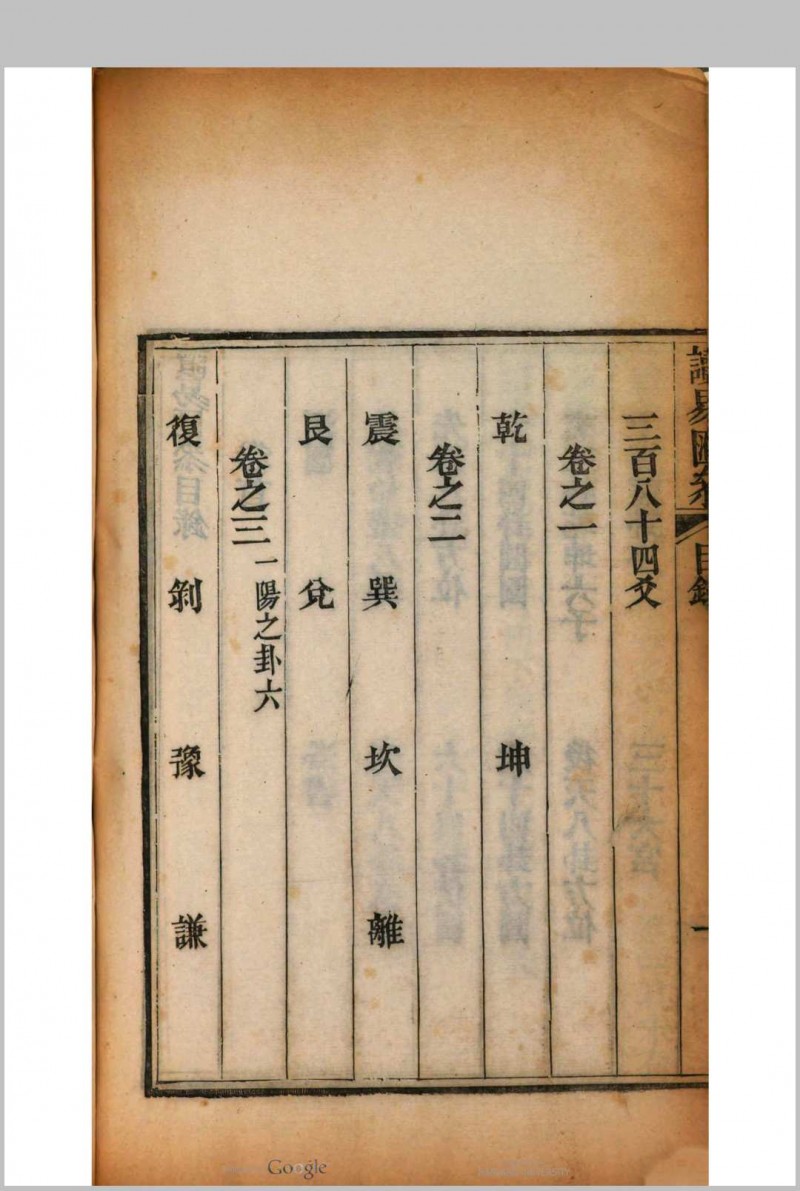 讀易匯參 目錄 一
三百八十四爻
卷之一
乾 坤
卷之二
震 巽 坎 離
艮 兌
卷之三 一陽之卦六
復 剝 豫 謙
Google